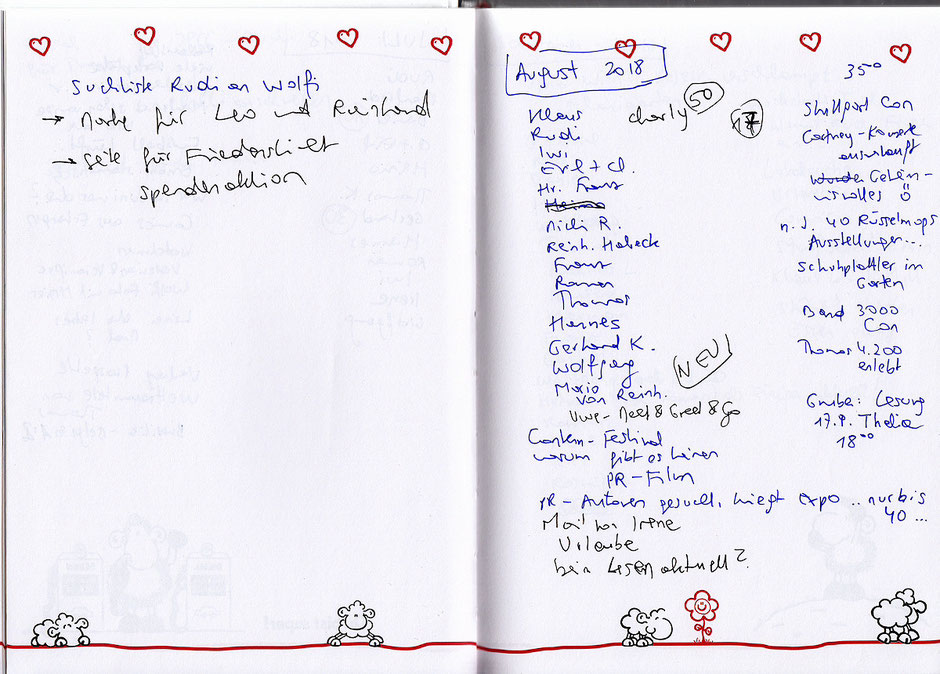 Suchliste Rudi an Wolfi
→ Marke für Leo und Reinhard
→ Seite für Friedenslicht
spendenaktion
August 2018
Klaus
Rudi
Iwi
Erl + Cl.
Hr. Franz
Nicki R.
Reinh. Habeck
Franz
Roman
Thomas
Hannes
Gerhard K.
Wolfgang
Mario
von Reinh.
Uwe - Meet & Greet & Go
charly 50
17
NEU
Contem - Festival
warum gibt es keinen
PR - Film
PR - Autoren gesucht, kriegt expo .. nur bis
40 ...
Mail von Irene
Urlaube
kein Lesen aktuell?
350
Stuttgart Con
Cartney - Konzert
ausverkauft
Geheim-
nisvolles Ö
n. J. 40 Rüsselmops
Ausstellungen...
Schuhplattler im
Garten
Band 3000
Con
Thomas 4.200
erlebt
Gruber: Lesung
17.9. Thalia
18⁰⁰